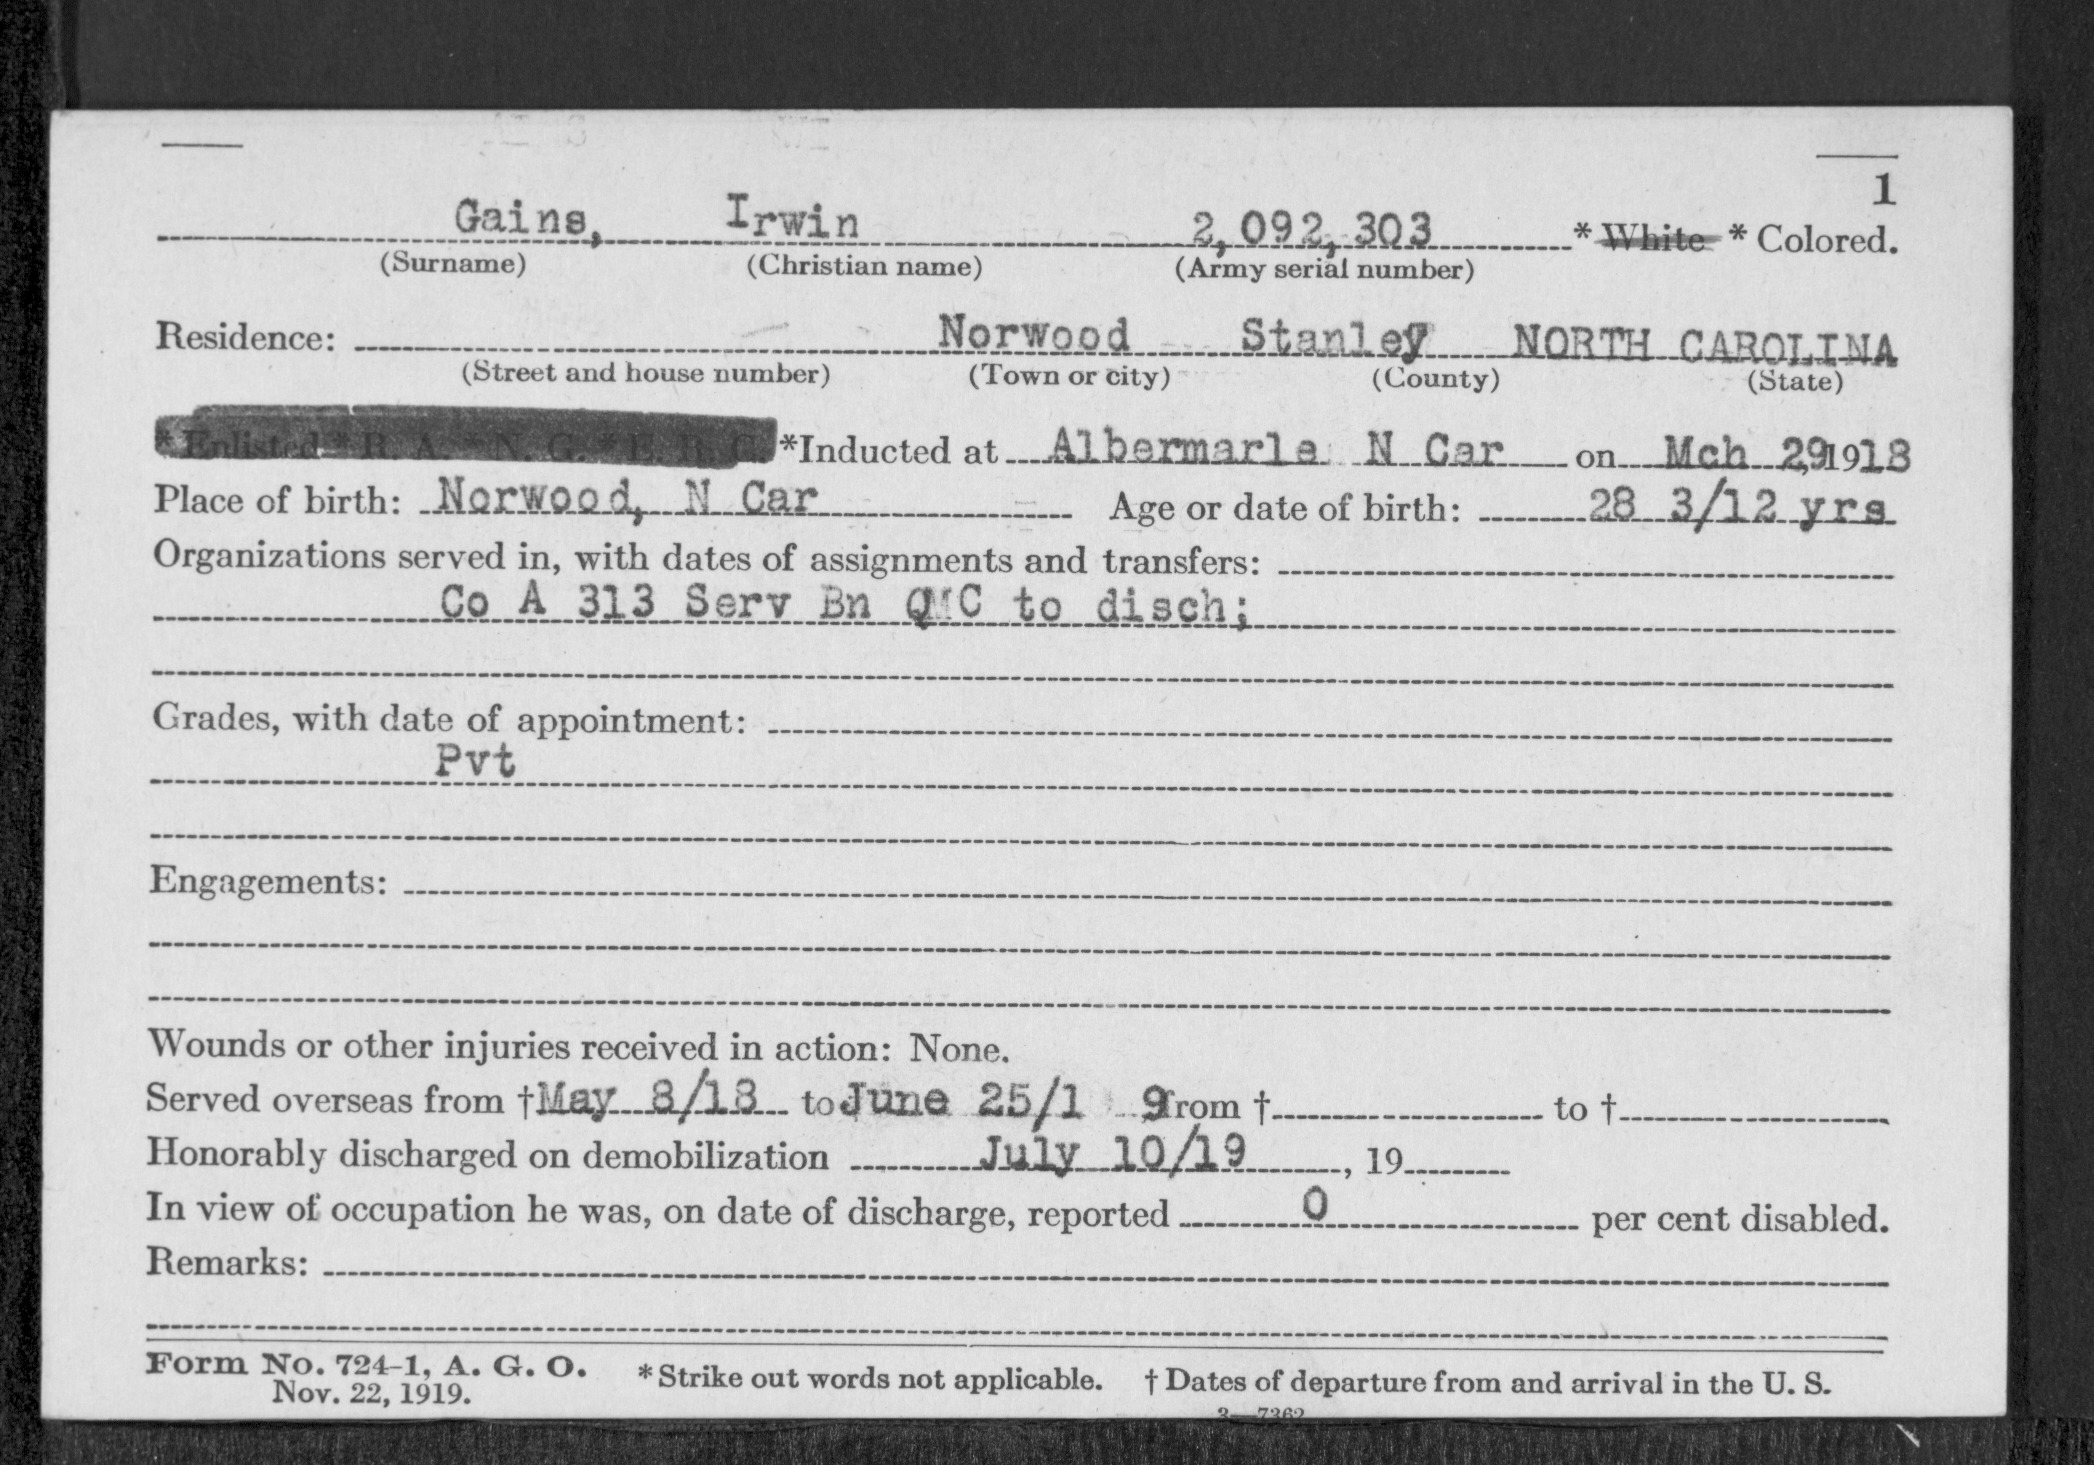 1
Gains, Irwin 2,092,303 * White * Colored.
(Surname) (Christian name) (Army serial number)
Residence: Norwood Stanley NORTH CAROLINA
(Street and house number) (Town or city) (County) (State)
* Enlisted * R. A. * N. G. * E. R. C. *Inducted at Albermarle N Car on Mch 29, 1918
Place of birth: Norwood, N Car Age or date of birth: 28 3/12 yrs
Organizations served in, with dates of assignments and transfers:
Co A 313 Serv Bn QMC to disch;
Grades, with date of appointment:
Pvt
Engagements:
Wounds or other injuries received in action: None.
Served overseas from † May 8/18 to June 25/1 9 from † to †
Honorably discharged on demobilization July 10/19, 19
In view of occupation he was, on date of discharge, reported 0 per cent disabled.
Remarks:
Form No. 724-1, A. G. O. * Strike out words not applicable. † Dates of departure from and arrival in the U. S.
Nov. 22, 1919.
3—7362